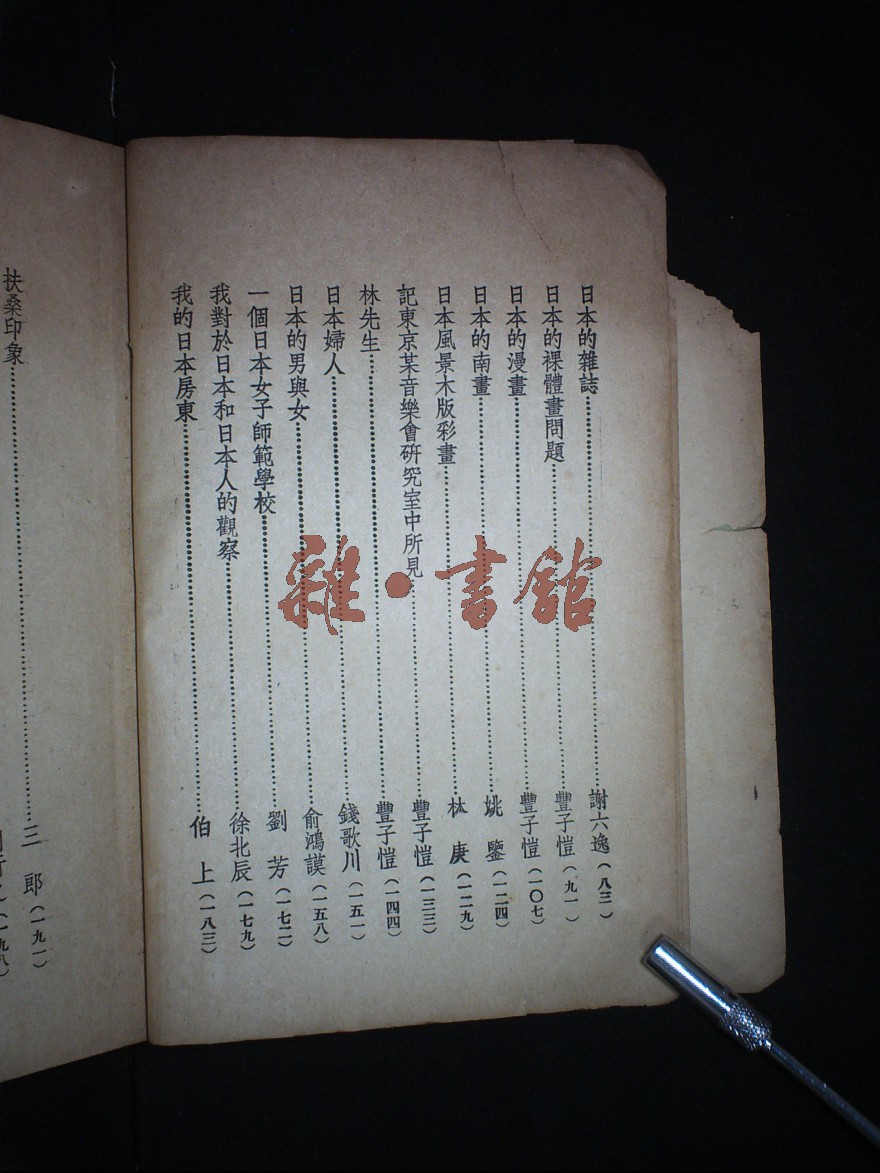 日本的雜誌……謝六逸(八三)
日本的裸體畫問題……豐子愷(九一)
日本的漫畫……豐子愷(一〇七)
日本的南畫……姚鑒(一二四)
日本風景木版彩畫……林庚(一二九)
記東京某音樂會研究室中所見……豐子愷(一三三)
林先生……豐子愷(一四四)
日本婦人……錢歌川(一五一)
日本的男與女……俞鴻謨(一五八)
一個日本女子師範學校……劉芳(一七二)
我對於日本和日本人的觀察……徐北辰(一七九)
我的日本房東……伯上(一八三)
扶桑印象……三郎(一九一)
(一九八)
雜·書館